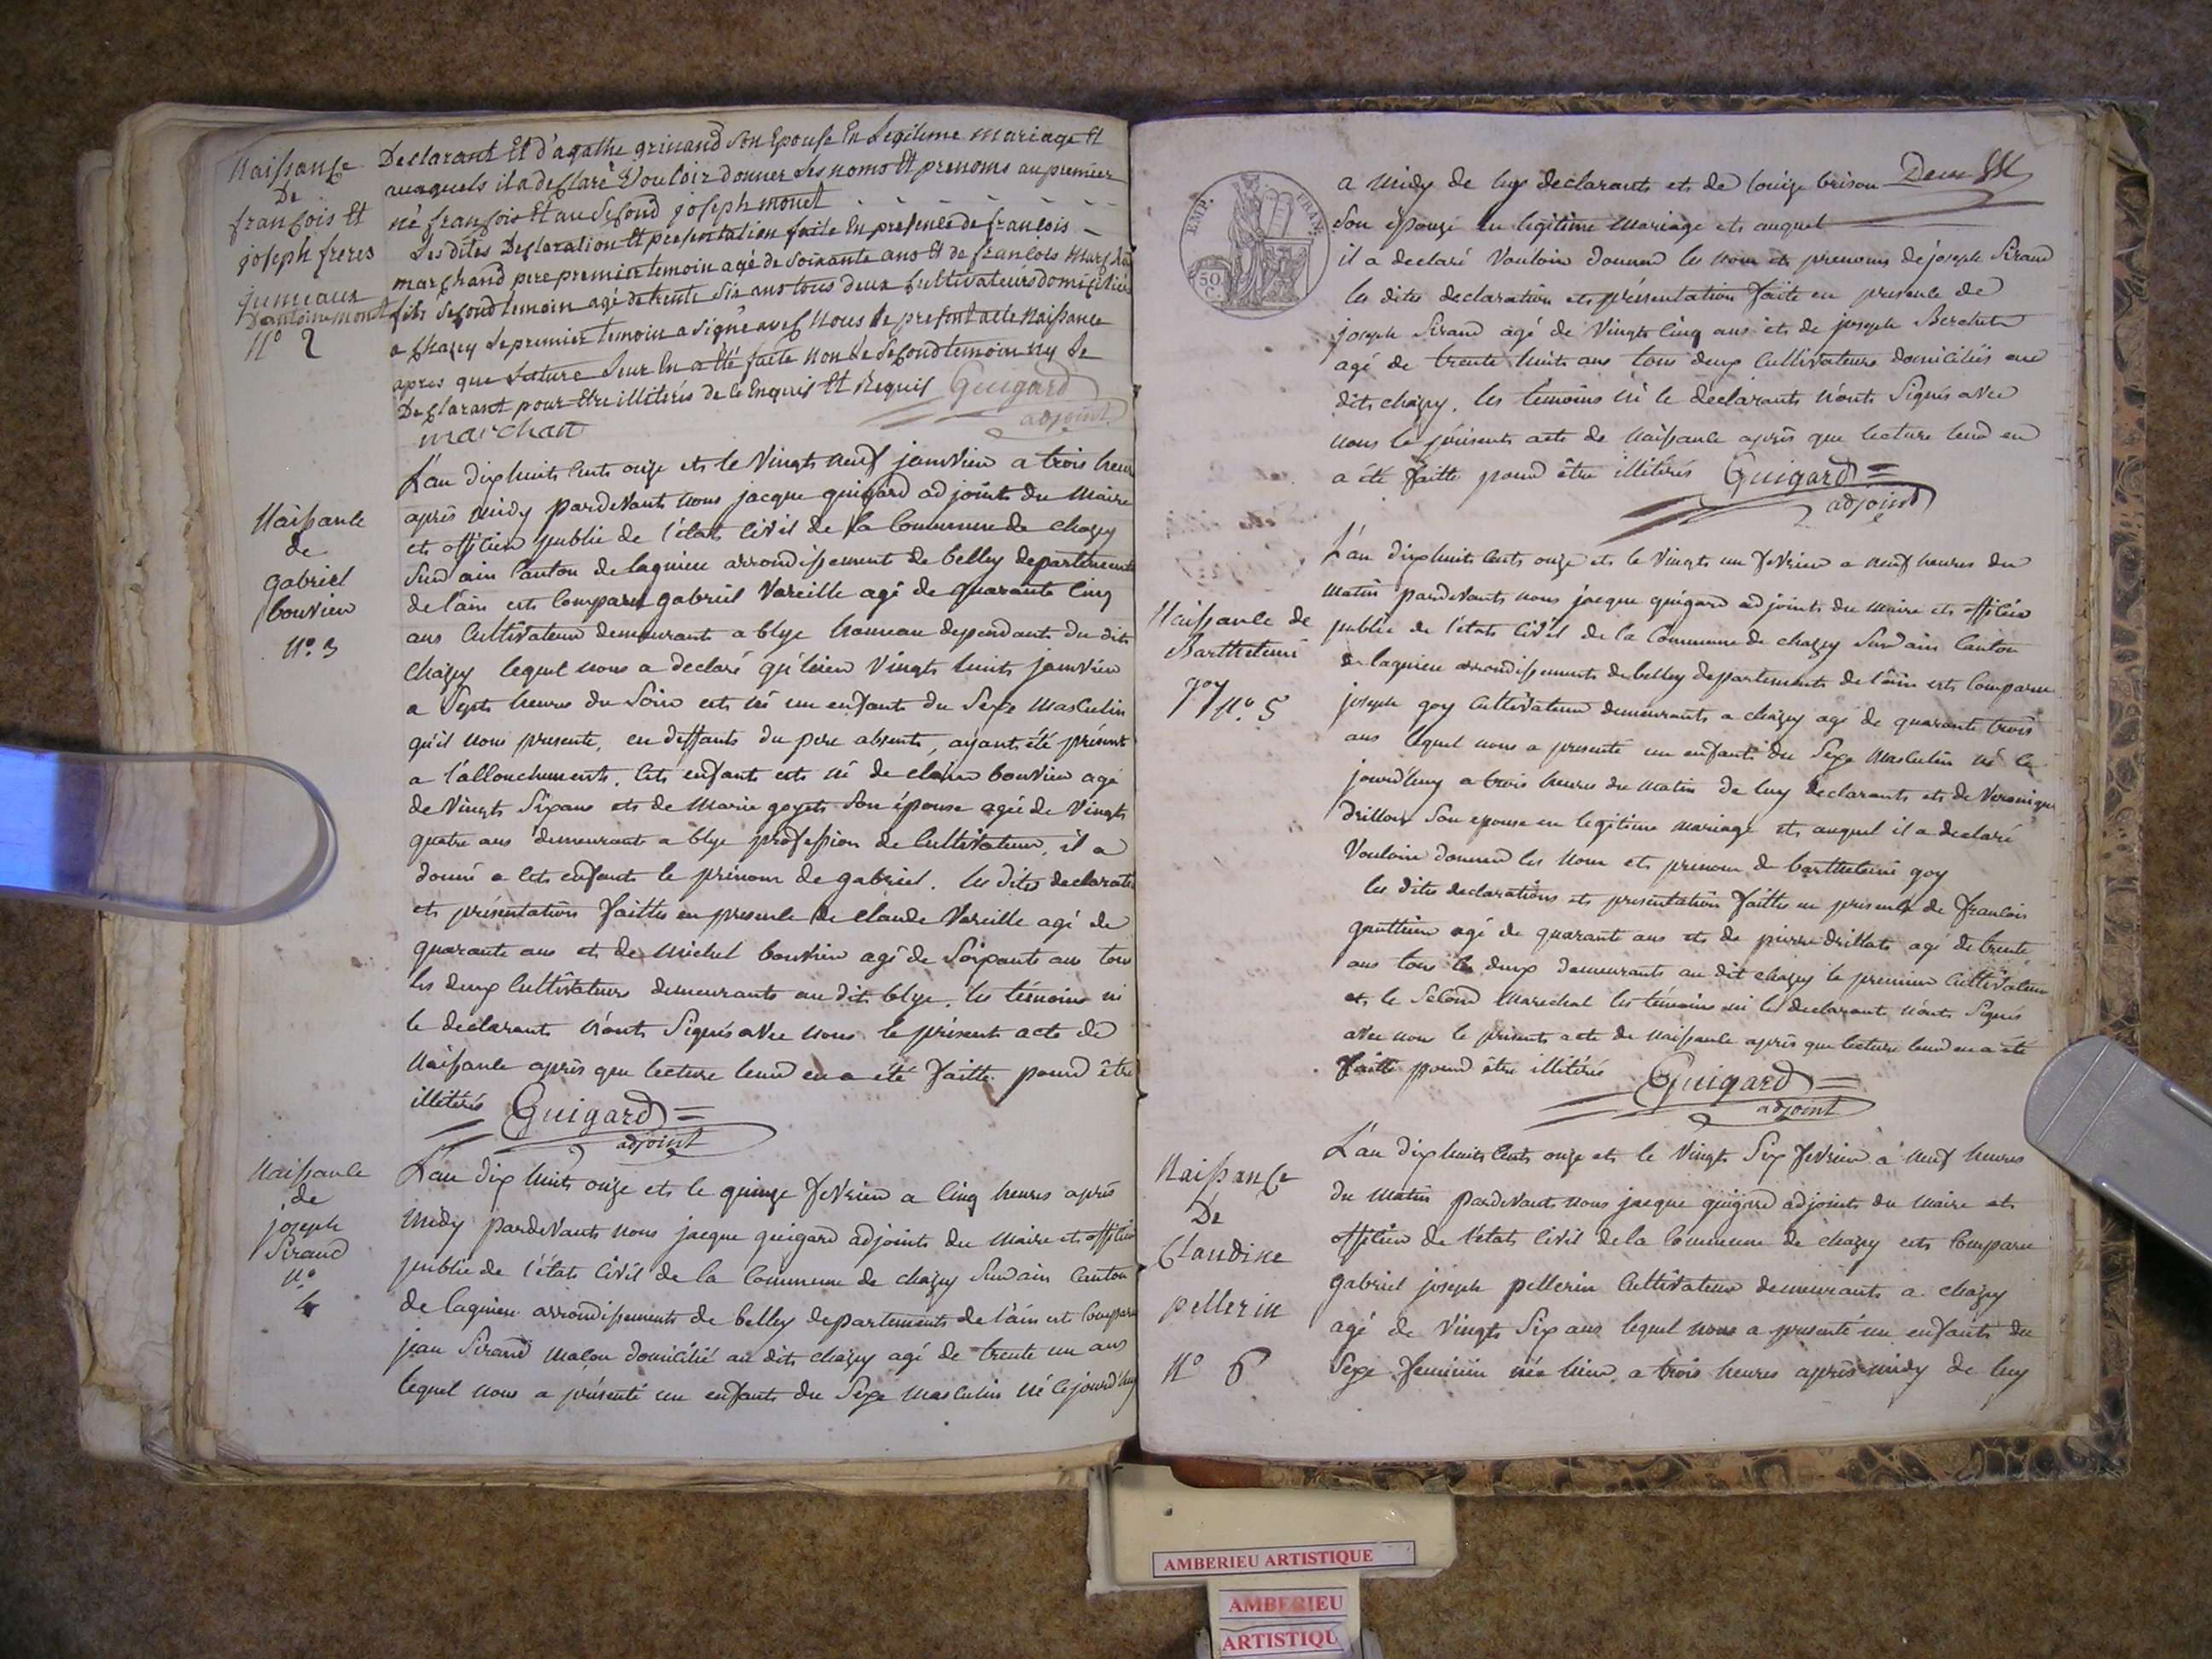 Naissance
De
françois Et
joseph freres
jumeaux
D'antoine monet
N° 2
Declarant Et d'agathe grinand son Epouse En Legitime mariage Et
auxquels il a declaré Vouloir donner les noms Et prenoms au premier
né françois Et au second joseph monet
Lesdites Declaration Et presentation faite En presence de francois
marchand pere premier temoin agé de soixante ans Et de francois
fils second temoin agé de trente six ans tous deux cultivateurs domiciliés
a chazey le premier temoin a signé avec nous le present acte Naissance
apres que lecture leur En a Eté faite non le second temoin ny le
Declarant pour Etre illiterés de ce Enquis Et Requis Guigard
adjoint
marchant
Naissance
de
gabriel
bouvier
N° 3
L'an dix huit cents onze et le vingt neuf janvier a trois heures
après midy pardevant nous jacque guigard adjoint du Maire
et officier public de l'état civil de la Commune de chazey
sur ain canton de lagnieu arrondissement de belley departement
de l'ain est comparu gabriel Vareille agé de quarante cinq
ans Cultivateur demeurant a blye hameau dependant du dit
chazey lequel nous a declaré qu'hier vingt huit janvier
a sept heures du soir est né un enfant du sexe masculin
qu'il nous presente, en deffaut du pere absent, ayant été présent
a l'accouchement. cet enfant est né de claire bouvier agé
de vingt six ans et de Marie goyet son épouse agée de vingt
quatre ans demeurant a blye profession de Cultivateur, il a
donné a cet enfant le prénom de gabriel. les dites declaration
et présentation faittes en presence de claude Vareille agé de
quarante ans et de michel bouvier agé de soixante ans tous
les deux cultivateurs demeurant au dit blye. les témoins ni
le declarant n'ont signés avec nous le présent acte de
Naissance après que lecture leur en a été faitte pour être
illitérés Guigard
adjoint
Naissance
de
joseph
Sirand
N°
4
L'an dix huit onze et le quinze fevrier a cinq heures après
midy pardevant nous jacque guigard adjoint du Maire et officier
public de l'état civil de la Commune de chazey sur ain canton
de lagnieu arrondissement de belley departement de l'ain est comparu
jean Sirand maçon domicilié au dit chazey agé de trente un ans
lequel nous a présenté un enfant du sexe masculin né cejourd'huy
EMP. FRAN.
50 C.
a midy de luy declarant et de louize brison
son épouze en legitime mariage et auquel
il a declaré vouloir donner les nom et prenoms de joseph Sirand
les dites declaration et présentation faite en presence de
joseph Sirand agé de vingt cinq ans et de joseph Berchet
agé de trente huit ans tous deux cultivateurs domiciliés au
dit chazey. les témoins ni le déclarant n'ont signés avec
nous le présent acte de naissance après que lecture leur en
a été faitte pour être illitérés Guigard
adjoint
Naissance de
Barthelemi
goy
N° 5
L'an dix huit cents onze et le vingt un fevrier a neuf heures du
matin pardevant nous jacque guigard adjoint du maire et officier
public de l'etat civil de la Commune de chazey sur ain canton
de lagnieu arrondissement de belley departement de l'ain est comparu
joseph goy cultivateur demeurant a chazey agé de quarante trois
ans lequel nous a presenté un enfant du sexe masculin né ce
jourd'huy a trois heures du matin de luy declarant et de Veronique
drillon son epouse en legitime mariage et auquel il a declaré
vouloir donner les nom et prenom de barthelemi goy
les dites declarations et presentation faittes en presence de francois
gauthier agé de quarante ans et de pierre drillat agé de trente
ans tous les deux demeurant au dit chazey le premier cultivateur
et le second marechal les témoins ni le declarant n'ont signés
avec nous le present acte de naissance après que lecture leur en a été
faitte pour être illitérés Guigard
adjoint
Naissance
De
Claudine
pellerin
N° 6
L'an dix huit cents onze et le vingt six fevrier a neuf heures
du matin pardevant nous jacque guigard adjoint du maire et
officier de l'etat civil de la Commune de chazey est comparu
gabriel joseph pellerin cultivateur demeurant a chazey
agé de vingt six ans lequel nous a presenté un enfant du
sexe feminin née hier a trois heures après midy de luy
AMBERIEU ARTISTIQUE
AMBERIEU
ARTISTIQU